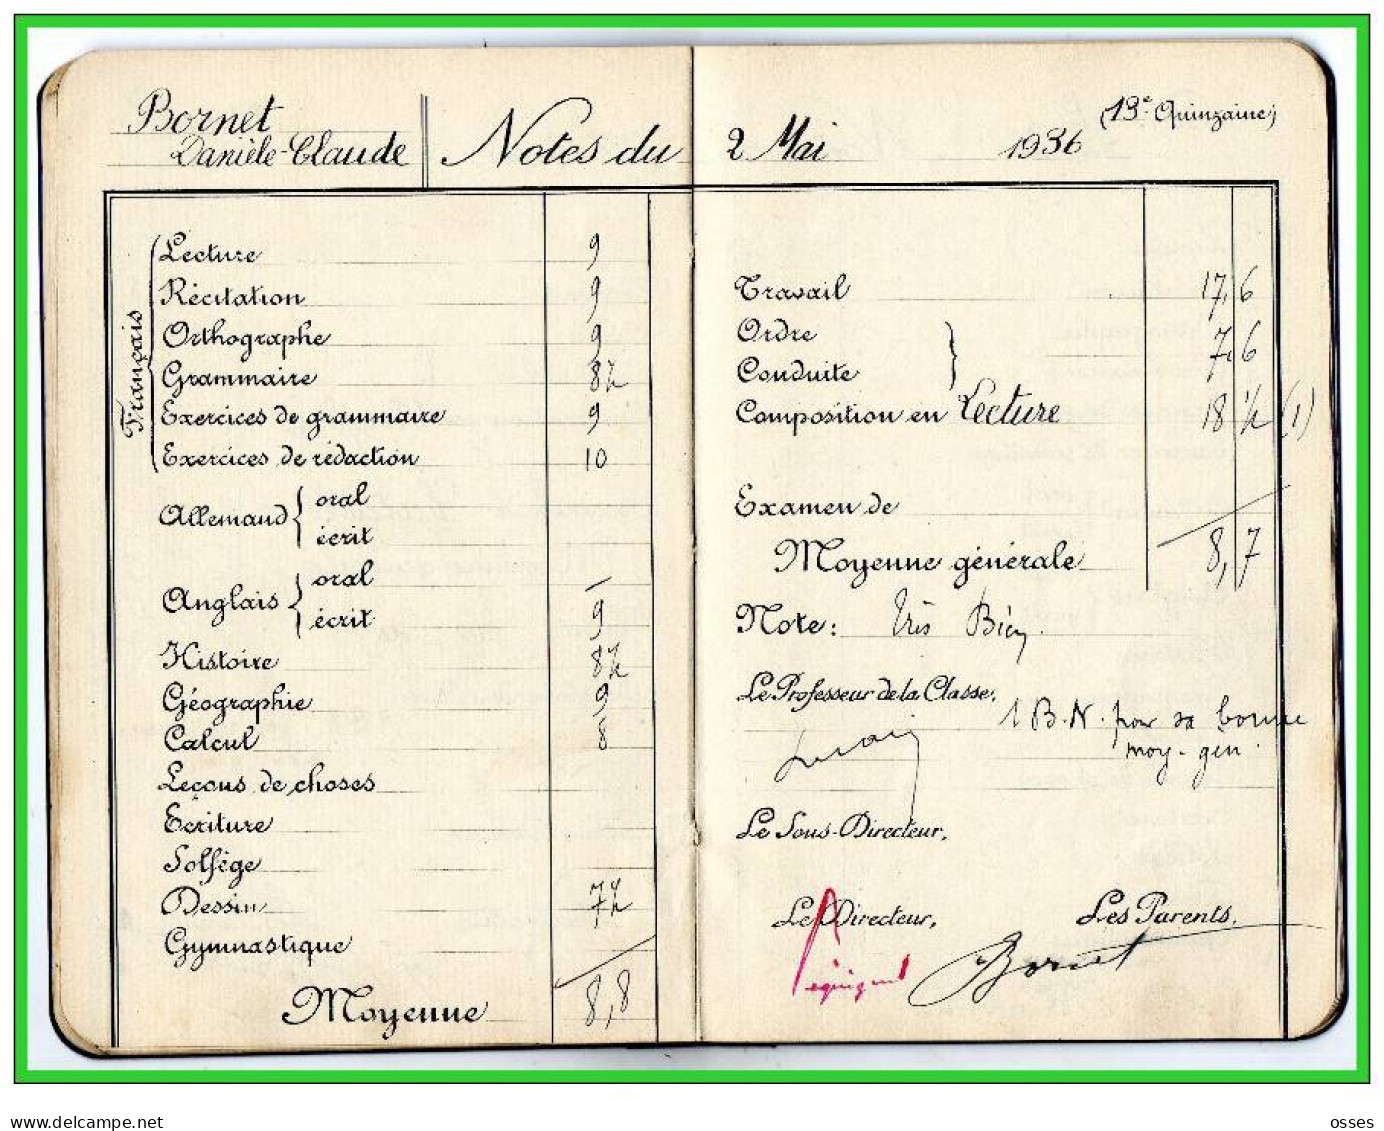 Bornet
Danièle-Claude
Notes du 2 Mai 1936
(13e Quinzaine)
Français
Lecture 9
Récitation 9
Orthographe 9
Grammaire 8½
Exercices de grammaire 9
Exercices de rédaction 10
Allemand oral
écrit
Anglais oral –
écrit 9
Histoire 8½
Géographie 9
Calcul 8
Leçons de choses
Ecriture
Solfège
Dessin 7½
Gymnastique
Moyenne 8,8
Travail 17,6
Ordre 7,6
Conduite
Composition en Lecture 18 ½ (1)
Examen de
Moyenne générale 8,7
Note: Très Bien.
Le Professeur de la Classe,
1 B.N. pour sa bonne
moy-gen.
Le Sous-Directeur,
Le Directeur,
Les Parents,
Bornet
www.delcampe.net
osses